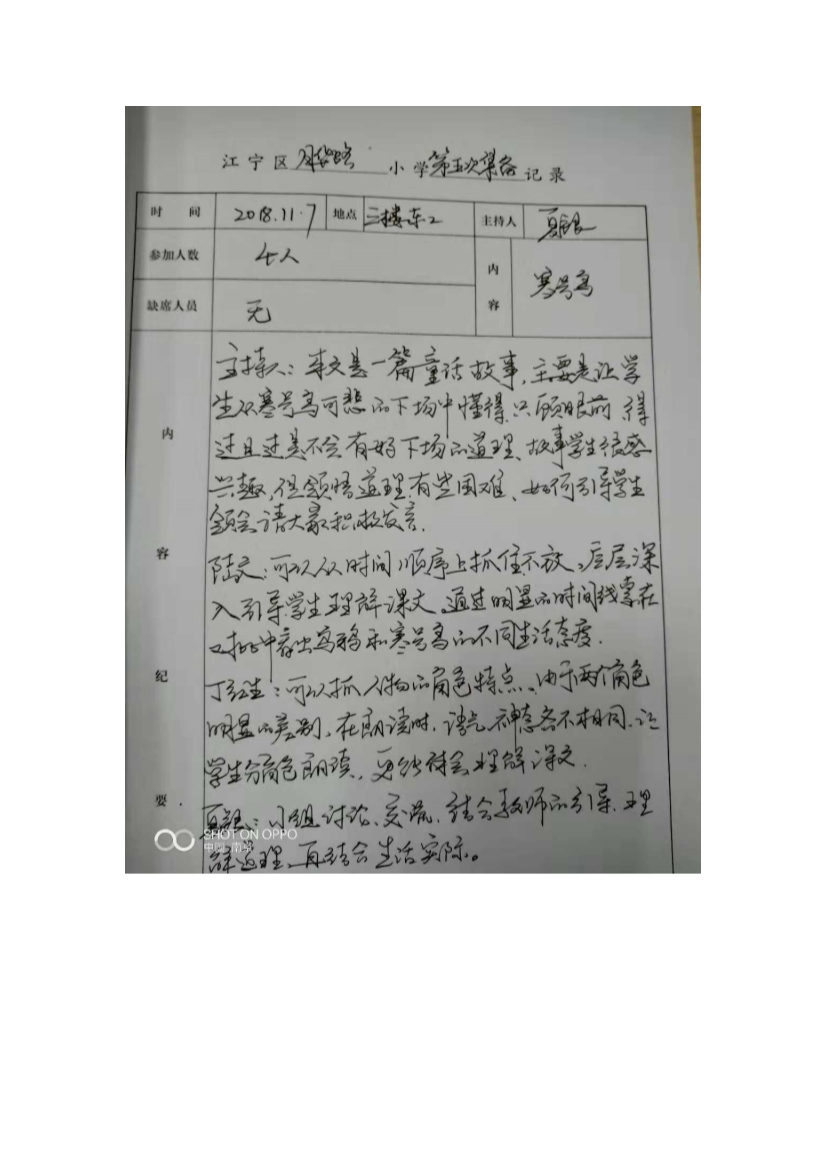 江宁区月华路小学第五次集备记录
时 间 2018.11.7 地点 三楼东2 主持人 夏银
参加人数 4人 内容 寒号鸟
缺席人员 无
内容纪要
主持人：本文是一篇童话故事，主要是让学
生从寒号鸟可悲的下场中懂得只顾眼前 得
过且过是不会有好下场的道理、故事学生很感
兴趣，但领悟道理有些困难、如何引导学生
领会请大家积极发言．
陆文：可以从时间顺序上抓住不放，层层深
入引导学生理解课文，通过明显的时间线索在
对比中看出喜鹊和寒号鸟的不同生活态度．
丁红生：可以抓人物的角色特点、由于两个角色
明显的差别，在朗读时，语气、神态各不相同，让
学生分角色朗读，更能体会理解课文．
夏银：小组讨论、交流，结合教师的引导、理
解道理，再结合生活实际。
SHOT ON OPPO
中国·南京